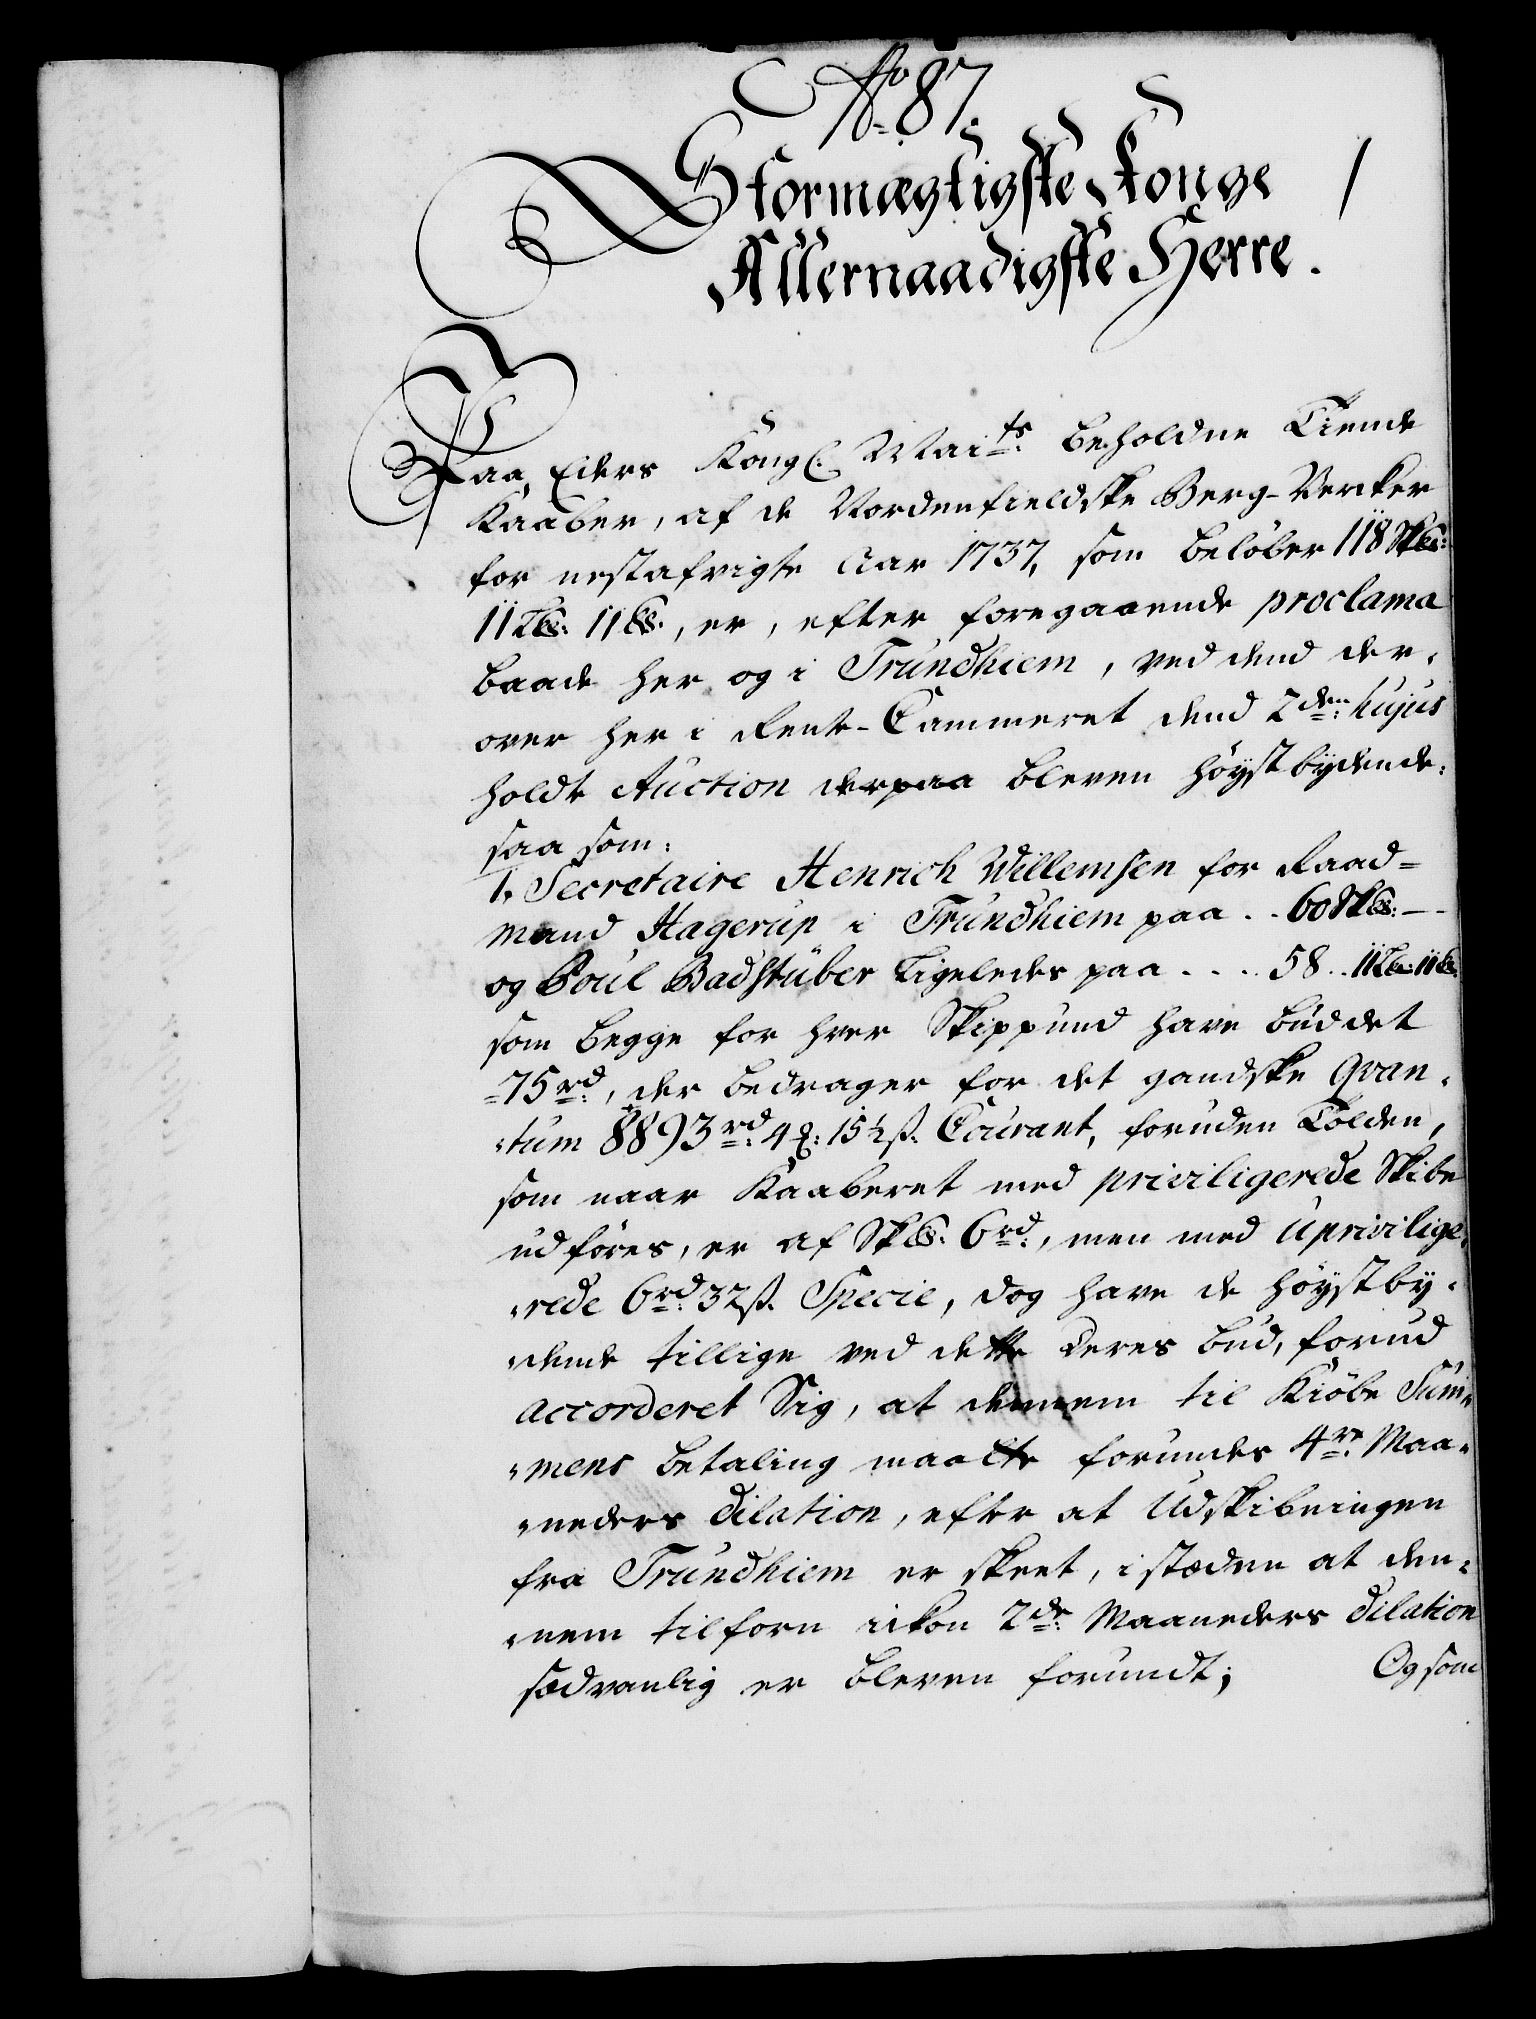 No 87.
Stormægtigste Konge
Allernaadigste Herre.
Paa Eders Kongl. Maits. beholdne Tiende
Kaaber, af de Nordenfieldske Berg-Vercker
for nestafvigte Aar 1737, som beløber 118 Sk℔:
11 L℔: 11 ℔., er, efter foregaaende proclama
baade her og i Trundhiem, ved dend der-
over her i Rente-Cammeret dend 2den: hujus
holdte Auction derpaa bleven høystbydende:
saa som:
1. Secretaire Henrich Willemsen for Raad=
mand Hagerup i Trundhiem paa . . 60 Sk℔: — -
og Poul Badstüber ligeledes paa . . . . 58 . . 11 L℔: 11 ℔:
som begge for hver Skippund have buddet
=75 rd:, der bedrager for det gandske Qvan-
-tum 8893 rd: 4 ℥: 15½ ß. Courant, foruden Tolden,
som naar Kaaberet med priviligerede Skibe
udføres, er af Sk℔. 6 rd:, men med Uprivilige-
-rede 6 rd: 32 ß. Specie, dog have de høystby-
-dende tillige ved dette deres bud, forud
accorderet Sig, at dennem til Kiøbe Sum-
-mens betaling maatte forundes 4re. Maa-
-neders dilation, efter at Udskibningen
fra Trundhiem er skeet, i stæden at den-
-nem tilforn ickon 2de: Maaneders dilation
sædvanlig er bleven forundt;
Og som